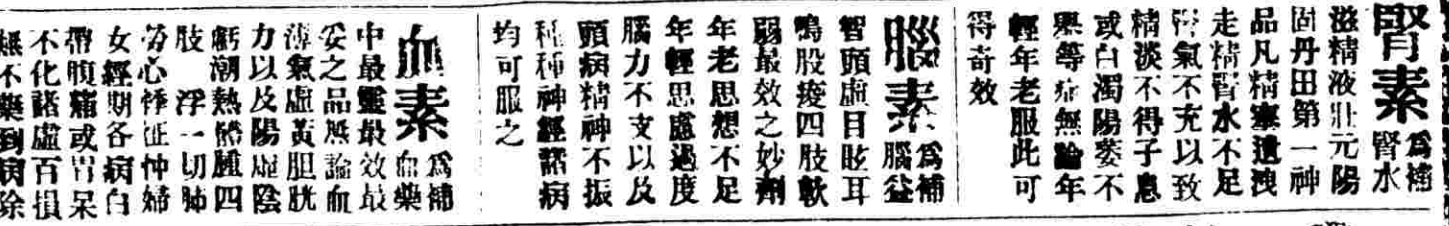 腎素 爲補腎水
滋精液壯元陽
固丹田第一神
品凡精寒遺洩
走精腎水不足
腎氣不充以致
精淡不得子息
或白濁陽萎不
舉等症無論年
輕年老服此可
得奇效
腦素 爲補腦益
智頭虛目眩耳
鳴股痠四肢軟
弱最效之妙劑
年老思想不足
年輕思慮過度
腦力不支以及
頭病精神不振
種種神經諸病
均可服之
血素 爲補血藥
中最靈最效最
妥之品無論血
薄氣虛黃胆胱
力以及陽虛陰
虧潮熱體腫四
肢浮一切肺
勞心悸怔忡婦
女經期各病白
帶腹痛或胃呆
不化諸虛百損
無不藥到病除